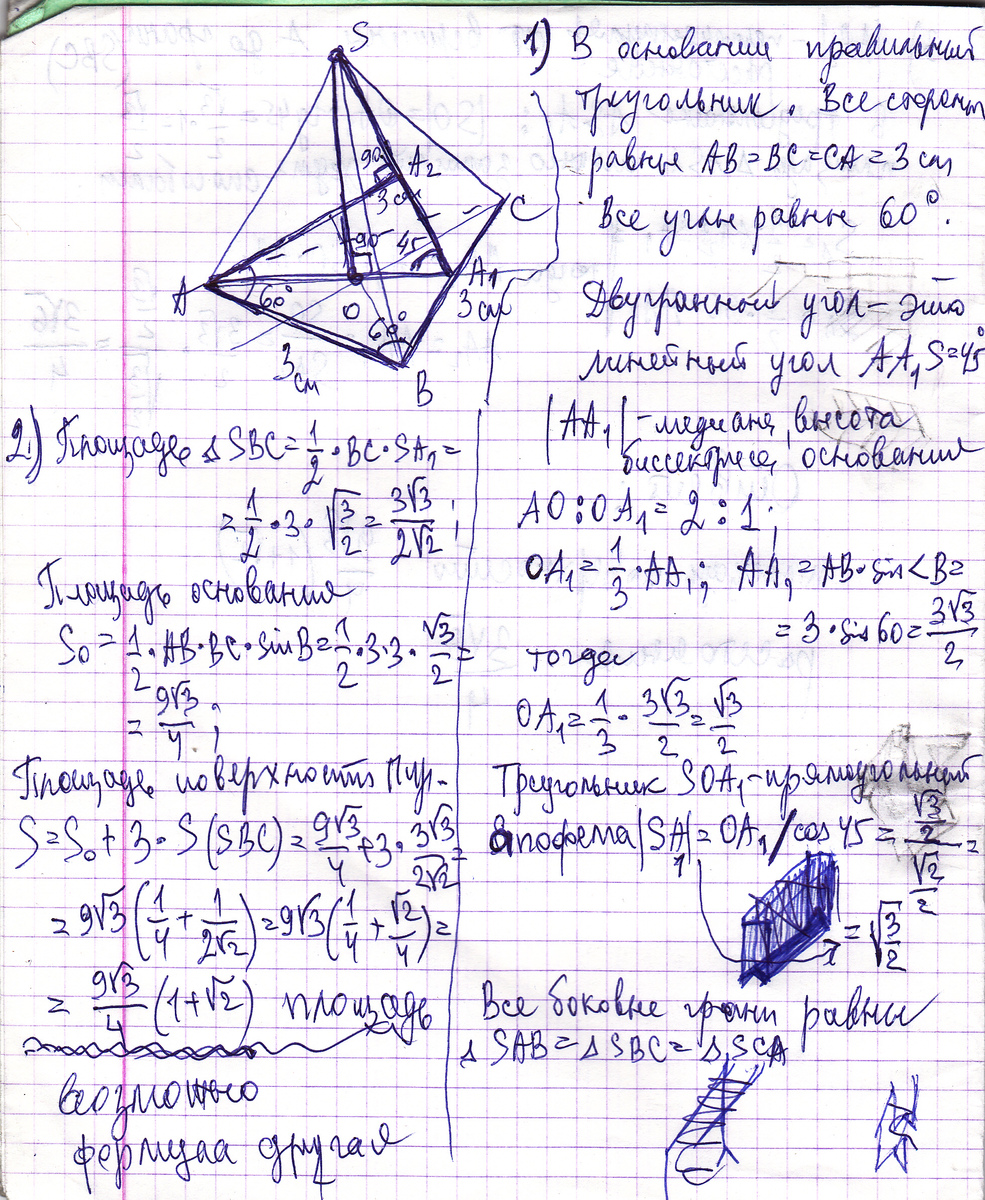 S
90
A₂
3 см
C
90
45
A₁
3 см
A
60°
O
60°
3 см
B
1) В основании правильный
треугольник. Все стороны
равны AB=BC=CA=3 см
Все углы равны 60°.
Двугранный угол – это
линейный угол AA₁S=45°
|AA₁| - медиана, высота
биссектриса основания
AO:OA₁=2:1;
OA₁=1/3·AA₁; AA₁=AB·sin<B=
=3·sin60=3√3/2
тогда
OA₁=1/3·3√3/2=√3/2
Треугольник SOA₁-прямоугольный
Апофема |SA₁|=OA₁/cos45=(√3/2)/(√2/2)=
=√(3/2)
Все боковые грани равны
△SAB=△SBC=△SCA
2.) Площадь △SBC=1/2·BC·SA₁=
=1/2·3·√(3/2)=3√3/(2√2);
Площадь основания
S₀=1/2·AB·BC·sinB=1/2·3·3·√3/2=
=9√3/4;
Площадь поверхности Пир.
S=S₀+3·S(SBC)=9√3/4+3·3√3/(2√2)=
=9√3(1/4+1/(2√2))=9√3(1/4+√2/4)=
=9√3/4(1+√2) площадь
возможно
формула другая